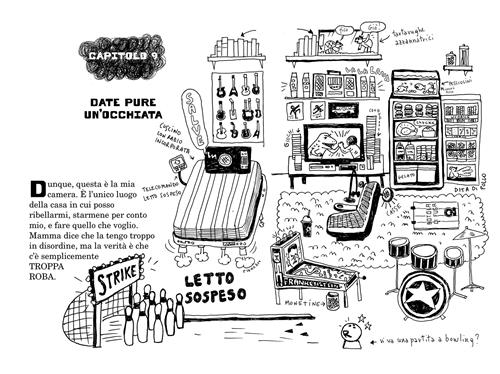 CAPITOLO 9
DATE PURE
UN'OCCHIATA
Dunque, questa è la mia
camera. È l'unico luogo
della casa in cui posso
ribellarmi, starmene per conto
mio, e fare quello che voglio.
Mamma dice che la tengo troppo
in disordine, ma la verità è che
c'è semplicemente
TROPPA
ROBA.
CUSCINO
CON RADIO
INCORPORATA
TELECOMANDO
LETTO SOSPESO
LETTO
SOSPESO
STRIKE
tartarughe
azzannatrici
GIOCHI
GELATO
DITA DI POLLO
FRANKENSTEIN
MONETINE
vi va una partita a bowling?